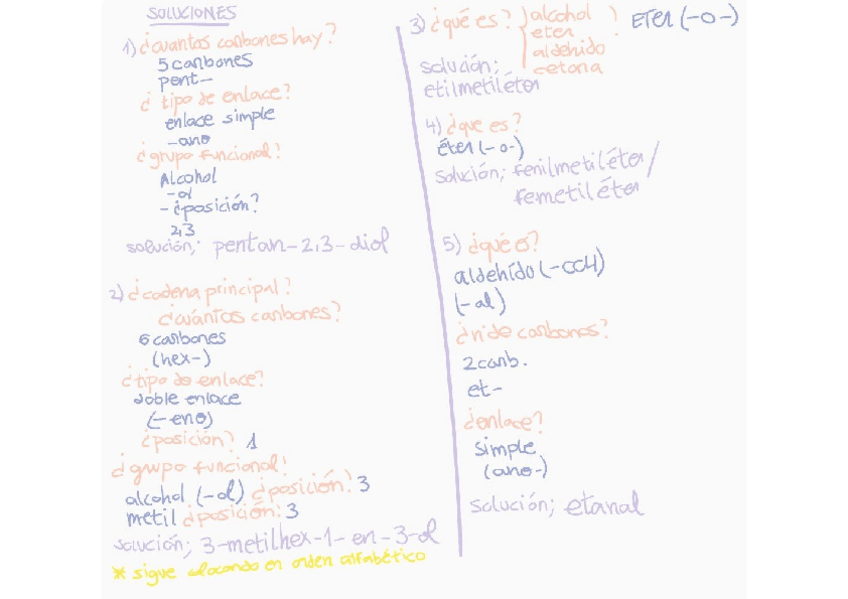 SOLUCIONES
1) ¿cuantos carbones hay?
5 carbones
pent-
¿ tipo de enlace?
enlace simple
-ano
¿grupo funcional?
Alcohol
-ol
- ¿posición?
2,3
solución; pentan-2,3-diol
2) ¿cadena principal?
¿cuántos carbones?
6 carbones
(hex-)
¿tipo de enlace?
doble enlace
(-eno)
¿posición? 1
¿grupo funcional?
alcohol (-ol) ¿posición? 3
metil ¿posición? 3
solución; 3-metilhex-1-en-3-ol
* sigue colocando en orden alfabético
3) ¿qué es? alcohol ? ETER (-o-)
eter
aldehido
cetona
solución;
etilmetiléter
4) ¿que es?
éter (-o-)
solución; fenilmetiléter/
femetiléter
5) ¿qué es?
aldehído (-CO4)
(-al)
¿nº de carbonos?
2 carb.
et-
¿enlace?
simple
(ano-)
solución; etanal